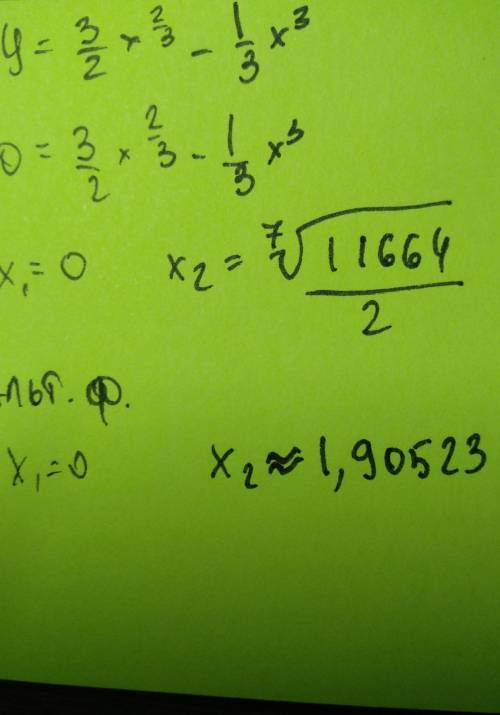 y = 3/2 x^2/3 - 1/3 x^3
0 = 3/2 x^2/3 - 1/3 x^3
x₁ = 0 x₂ = ⁷√11664 / 2
ф.
x₁ = 0 x₂ ≈ 1,90523